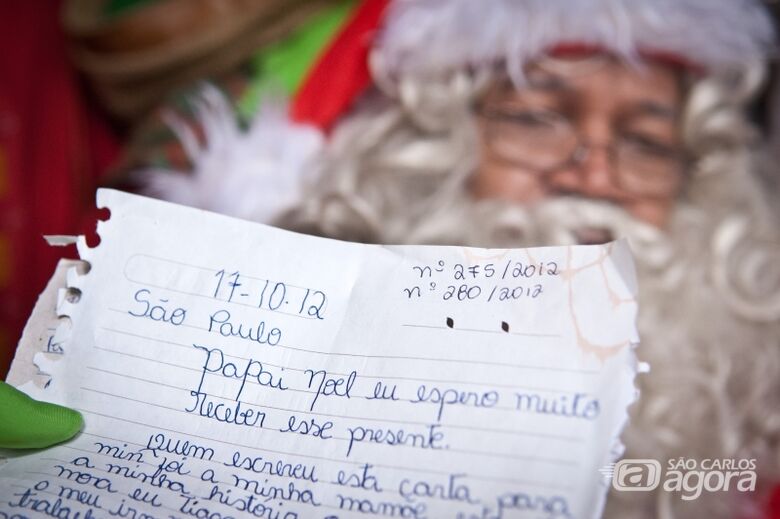 nº 275/2012
nº 280/2012
17-10-12
São Paulo
Papai Noel eu espero muito
receber esse presente.
Quem escreveu esta carta para
min foi a minha mamãe
a minha história
mora eu Tiago
o meu irm
SÃO CARLOS
agora